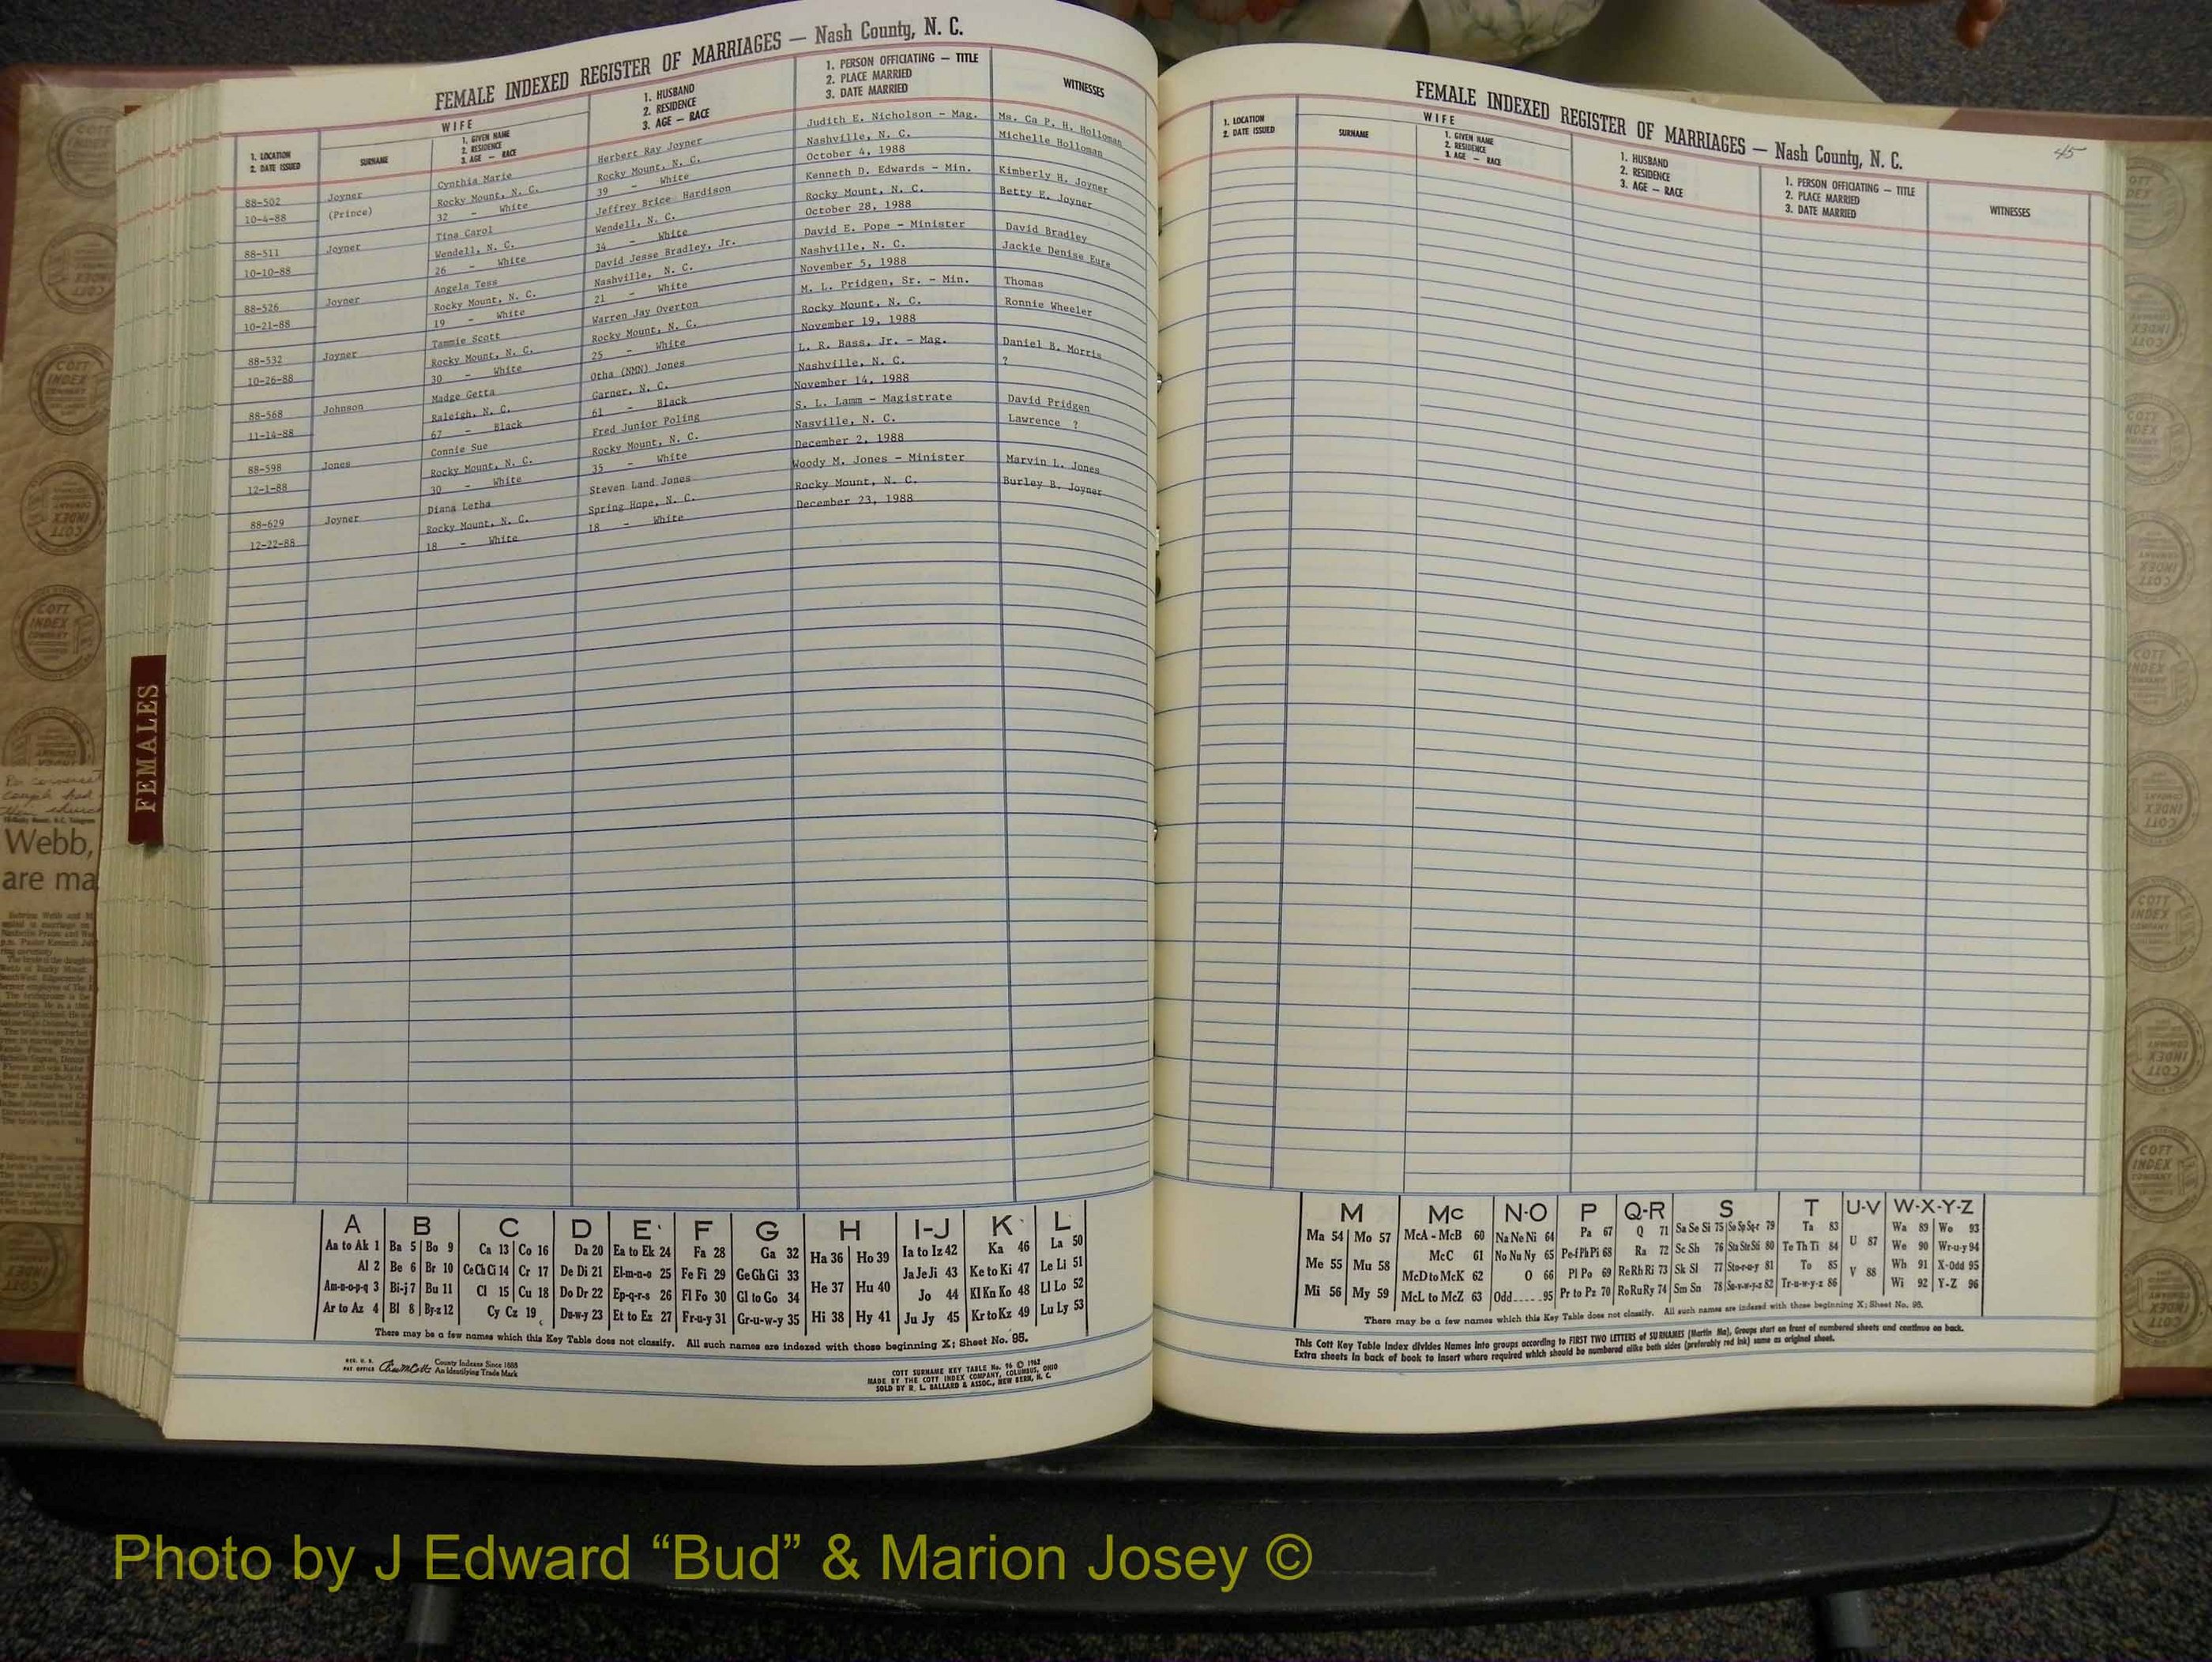 FEMALE INDEXED REGISTER OF MARRIAGES — Nash County, N. C.
1. LOCATION
2. DATE ISSUED
WIFE
SURNAME
1. GIVEN NAME
2. RESIDENCE
3. AGE — RACE
1. HUSBAND
2. RESIDENCE
3. AGE — RACE
1. PERSON OFFICIATING — TITLE
2. PLACE MARRIED
3. DATE MARRIED
WITNESSES
88-502 Joyner Cynthia Marie Herbert Ray Joyner Judith E. Nicholson - Mag. Ms. Ca P. H. Holloman
10-4-88 (Prince) Rocky Mount, N. C. Rocky Mount, N. C. Nashville, N. C. Michelle Holloman
32 - White 39 - White October 4, 1988
88-511 Joyner Tina Carol Jeffrey Brice Hardison Kenneth D. Edwards - Min. Kimberly H. Joyner
10-10-88 Wendell, N. C. Wendell, N. C. Rocky Mount, N. C. Betty E. Joyner
26 - White 34 - White October 28, 1988
88-526 Joyner Angela Tess David Jesse Bradley, Jr. David E. Pope - Minister David Bradley
10-21-88 Rocky Mount, N. C. Nashville, N. C. Nashville, N. C. Jackie Denise Eure
19 - White 21 - White November 5, 1988
88-532 Joyner Tammie Scott Warren Jay Overton M. L. Pridgen, Sr. - Min. Thomas
10-26-88 Rocky Mount, N. C. Rocky Mount, N. C. Rocky Mount, N. C. Ronnie Wheeler
30 - White 25 - White November 19, 1988
88-568 Johnson Madge Getta Otha (NMN) Jones L. R. Bass, Jr. - Mag. Daniel B. Morris
11-14-88 Raleigh, N. C. Garner, N. C. Nashville, N. C. ?
67 - Black 61 - Black November 14, 1988
88-598 Jones Connie Sue Fred Junior Poling S. L. Lamm - Magistrate David Pridgen
12-1-88 Rocky Mount, N. C. Rocky Mount, N. C. Nasville, N. C. Lawrence ?
30 - White 35 - White December 2, 1988
88-629 Joyner Diana Letha Steven Land Jones Woody M. Jones - Minister Marvin L. Jones
12-22-88 Rocky Mount, N. C. Spring Hope, N. C. Rocky Mount, N. C. Burley B. Joyner
18 - White 18 - White December 23, 1988
FEMALES
Webb,
are ma
A B C D E F G H I-J K L
Aa to Ak 1 Ba 5 Bo 9 Ca 13 Co 16 Da 20 Ea to Ek 24 Fa 28 Ga 32 Ha 36 Ho 39 Ia to Iz 42 Ka 46 La 50
Al 2 Be 6 Br 10 Ce Ch Ci 14 Cr 17 De Di 21 El-m-n-o 25 Fe Fi 29 Ge Gh Gi 33 He 37 Hu 40 Ja Je Ji 43 Ke to Ki 47 Le Li 51
Am-n-o-p-q 3 Bi-j 7 Bu 11 Cl 15 Cu 18 Do Dr 22 Ep-q-r-s 26 Fl Fo 30 Gl to Go 34 Hi 38 Hy 41 Jo 44 Kl Kn Ko 48 Ll Lo 52
Ar to Az 4 Bl 8 By-z 12 Cy Cz 19 Du-w-y 23 Et to Ez 27 Fr-u-y 31 Gr-u-w-y 35 Ju Jy 45 Kr to Kz 49 Lu Ly 53
There may be a few names which this Key Table does not classify. All such names are indexed with those beginning X; Sheet No. 95.
REG. U. S.
PAT OFFICE
County Indexes Since 1888
An Identifying Trade Mark
COTT SURNAME KEY TABLE No. 96 © 1962
MADE BY THE COTT INDEX COMPANY, COLUMBUS, OHIO
SOLD BY R. L. BALLARD & ASSOC., NEW BERN, N. C.
FEMALE INDEXED REGISTER OF MARRIAGES — Nash County, N. C.
45
1. LOCATION
2. DATE ISSUED
WIFE
SURNAME
1. GIVEN NAME
2. RESIDENCE
3. AGE — RACE
1. HUSBAND
2. RESIDENCE
3. AGE — RACE
1. PERSON OFFICIATING — TITLE
2. PLACE MARRIED
3. DATE MARRIED
WITNESSES
M Mc N-O P Q-R S T U-V W-X-Y-Z
Ma 54 Mo 57 McA - McB 60 Na Ne Ni 64 Pa 67 Q 71 Sa Se Si 75 So Sp Sq-r 79 Ta 83 U 87 Wa 89 Wo 93
Me 55 Mu 58 McC 61 No Nu Ny 65 Pe-f Ph Pi 68 Ra 72 Sc Sh 76 Sta Ste Sti 80 Te Th Ti 84 V 88 We 90 Wr-u-y 94
Mi 56 My 59 McD to McK 62 O 66 Pl Po 69 Re Rh Ri 73 Sk Sl 77 Sto-r-u-y 81 To 85 Wh 91 X-Odd 95
McL to McZ 63 Odd 95 Pr to Pz 70 Ro Ru Ry 74 Sm Sn 78 Su-v-w-y-z 82 Tr-u-w-y-z 86 Wi 92 Y-Z 96
There may be a few names which this Key Table does not classify. All such names are indexed with those beginning X; Sheet No. 95.
This Cott Key Table Index divides Names into groups according to FIRST TWO LETTERS of SURNAMES (Martin Ma), Groups start on front of numbered sheets and continue on back.
Extra sheets in back of book to insert where required which should be numbered alike both sides (preferably red ink) same as original sheet.
Photo by J Edward “Bud” & Marion Josey ©